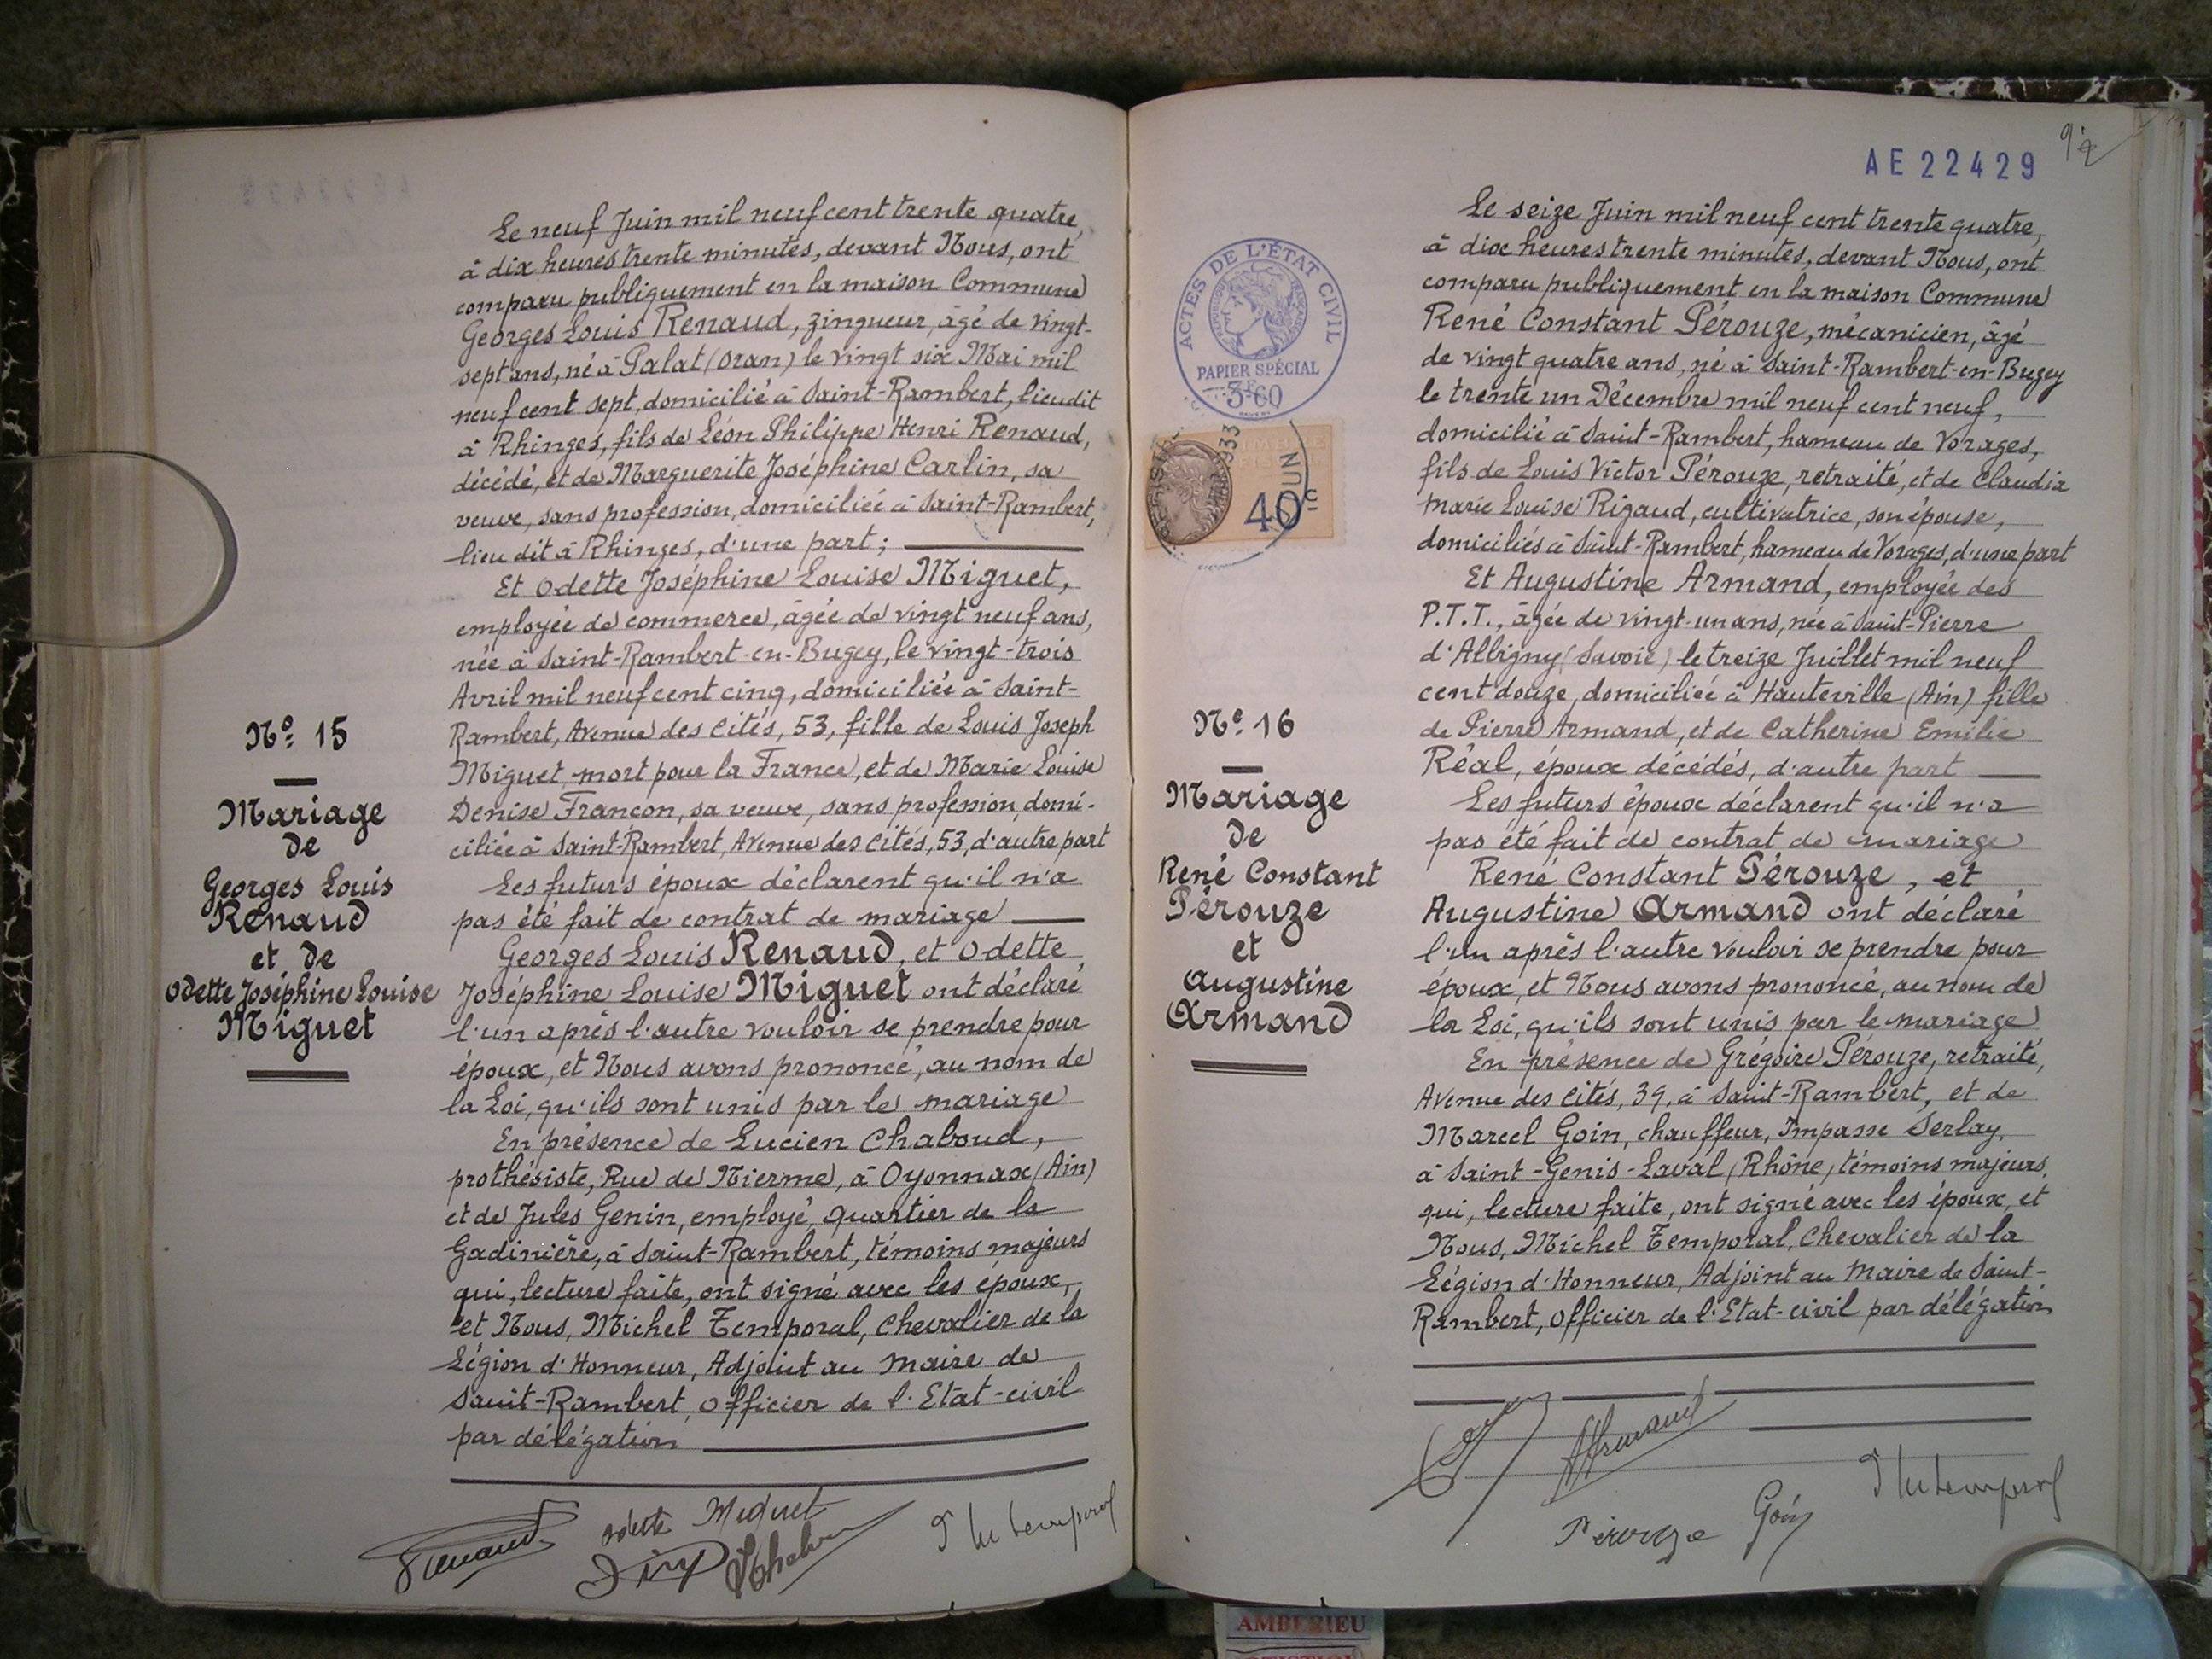 Le neuf Juin mil neuf cent trente quatre,
à dix heures trente minutes, devant Nous, ont
comparu publiquement en la maison Commune
Georges Louis Renaud, zingueur, âgé de vingt-
sept ans, né à Palat (Oran) le vingt six Mai mil
neuf cent sept, domicilié à Saint-Rambert, lieudit
à Rhinges, fils de Léon Philippe Henri Renaud,
décédé, et de Marguerite Joséphine Carlin, sa
veuve, sans profession, domiciliée à Saint-Rambert,
lieu dit à Rhinges, d'une part;
Et Odette Joséphine Louise Miguet,
employée de commerce, âgée de vingt neuf ans,
née à Saint-Rambert-en-Bugey, le vingt-trois
Avril mil neuf cent cinq, domiciliée à Saint-
Rambert, Avenue des Cités, 53, fille de Louis Joseph
Miguet, mort pour la France, et de Marie Louise
Denise Françon, sa veuve, sans profession, domi-
ciliée à Saint-Rambert, Avenue des Cités, 53, d'autre part
Les futurs époux déclarent qu'il n'a
pas été fait de contrat de mariage
Georges Louis Renaud, et Odette
Joséphine Louise Miguet ont déclaré
l'un après l'autre vouloir se prendre pour
époux, et Nous avons prononcé, au nom de
la Loi, qu'ils sont unis par le mariage
En présence de Lucien Chaboud,
prothésiste, Rue de Nierme, à Oyonnax (Ain)
et de Jules Genin, employé, quartier de la
Gadinière, à Saint-Rambert, témoins majeurs
qui, lecture faite, ont signé avec les époux,
et Nous, Michel Temporal, Chevalier de la
Légion d'Honneur, Adjoint au Maire de
Saint-Rambert, Officier de l'Etat-civil
par délégation
Nº 15
Mariage
de
Georges Louis
Renaud
et de
Odette Joséphine Louise
Miguet
Renaud
Odette Miguet
AE22429
ACTES DE L'ÉTAT CIVIL
PAPIER SPÉCIAL
3F60
40c
Le seize Juin mil neuf cent trente quatre,
à dix heures trente minutes, devant Nous, ont
comparu publiquement en la maison Commune
René Constant Pérouze, mécanicien, âgé
de vingt quatre ans, né à Saint-Rambert-en-Bugey
le trente un Décembre mil neuf cent neuf,
domicilié à Saint-Rambert, hameau de Vorages,
fils de Louis Victor Pérouze, retraité, et de Claudia
Marie Louise Rigaud, cultivatrice, son épouse,
domiciliés à Saint-Rambert, hameau de Vorages, d'une part
Et Augustine Armand, employée des
P.T.T., âgée de vingt-un ans, née à Saint-Pierre
d'Albigny (Savoie) le treize Juillet mil neuf
cent douze, domiciliée à Hauteville (Ain) fille
de Pierre Armand, et de Catherine Emilie
Réal, époux décédés, d'autre part
Les futurs époux déclarent qu'il n'a
pas été fait de contrat de mariage
René Constant Pérouze, et
Augustine Armand ont déclaré
l'un après l'autre vouloir se prendre pour
époux, et Nous avons prononcé, au nom de
la Loi, qu'ils sont unis par le mariage
En présence de Grégoire Pérouze, retraité,
Avenue des Cités, 39, à Saint-Rambert, et de
Marcel Goin, chauffeur, Impasse Serlay,
à Saint-Genis-Laval (Rhône) témoins majeurs,
qui, lecture faite, ont signé avec les époux, et
Nous, Michel Temporal, Chevalier de la
Légion d'Honneur, Adjoint au Maire de Saint-
Rambert, Officier de l'Etat-civil par délégation
Nº 16
Mariage
de
René Constant
Pérouze
et
Augustine
Armand
Armand
Pérouze
Goin
AMBERIEU